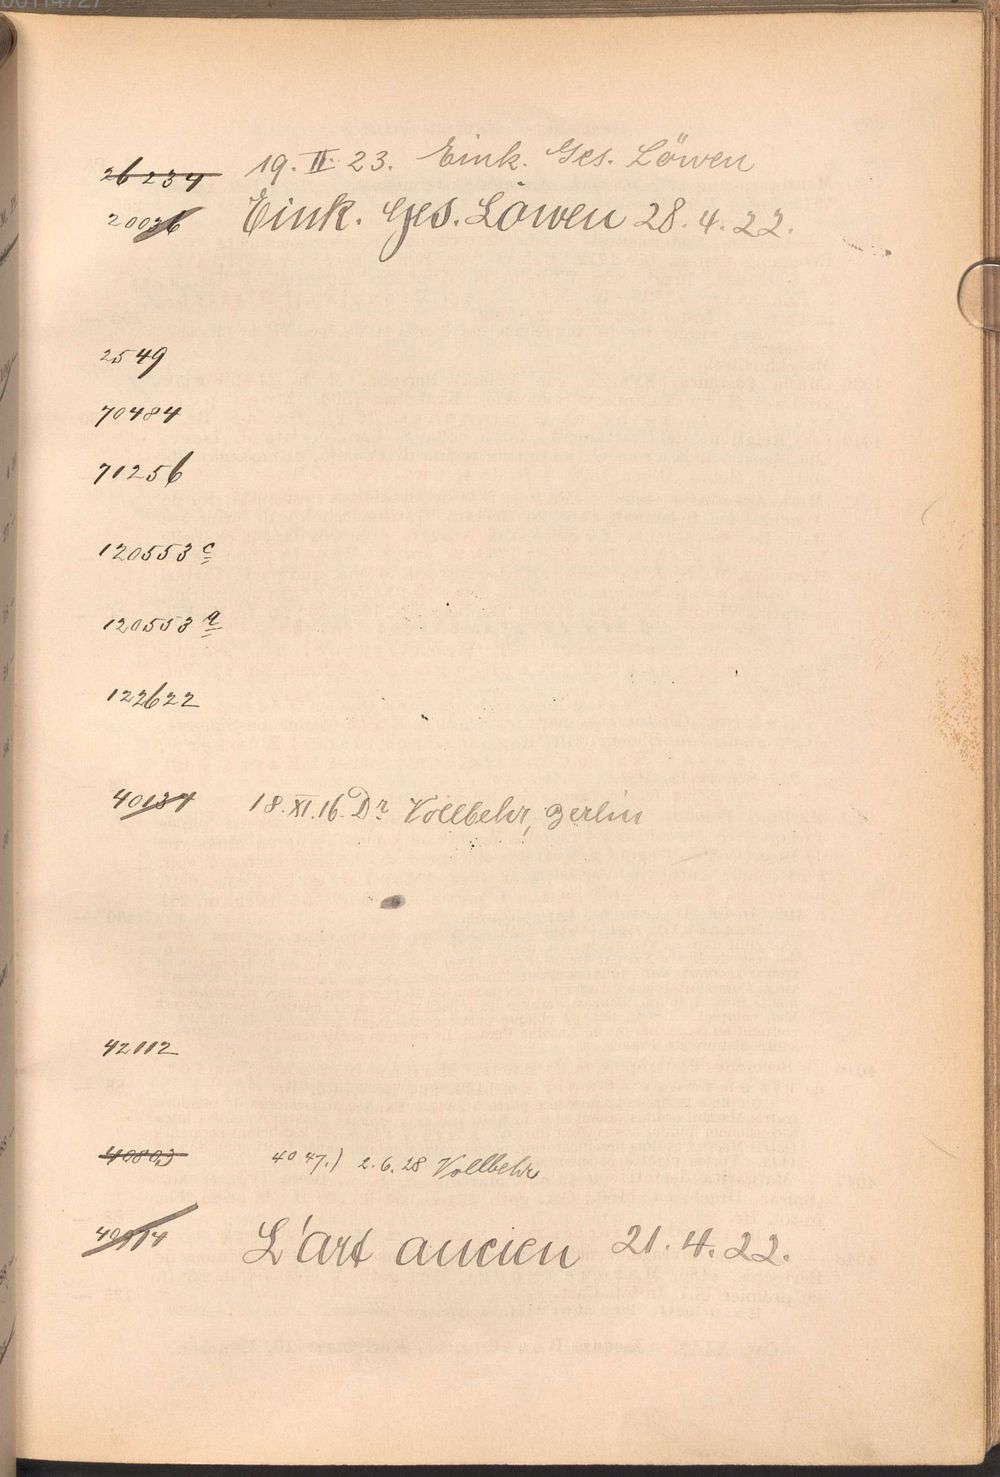 26234 19. II. 23. Eink. Ges. Löwen
20036 Eink. Ges. Löwen 28. 4. 22.
2549
70484
71256
120553 c
120553 a
122622
40134 18. XI. 16. Dr Vollbehr, Berlin
42112
40803 4047.) 2. 6. 28 Vollbehr
L'art ancien 21. 4. 22.